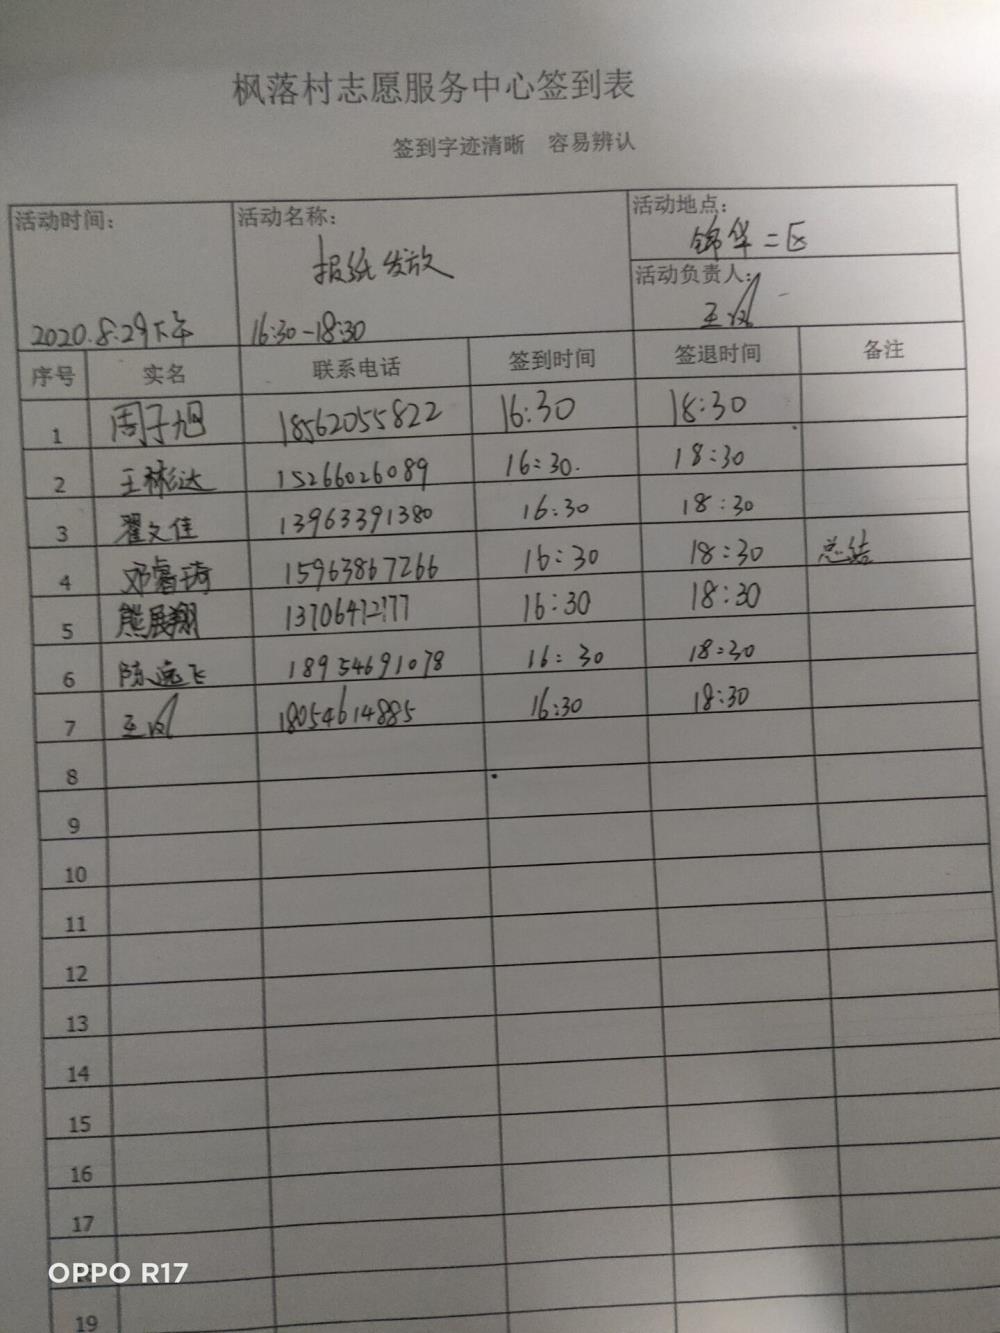 枫落村志愿服务中心签到表
签到字迹清晰 容易辨认
活动时间: 活动名称: 活动地点:
报纸发放 锦华二区
活动负责人:
2020.8.29下午 16:30-18:30
序号 实名 联系电话 签到时间 签退时间 备注
1 周子旭 18562055822 16:30 18:30
2 王彬达 15266026089 16:30. 18:30
3 翟文佳 13963391380 16:30 18:30
4 邓睿琦 15963867266 16:30 18:30 总结
5 熊展翔 13706472777 16:30 18:30
6 陈逸飞 18954691078 16:30 18:30
7 18054614885 16:30 18:30
8
9
10
11
12
13
14
15
16
17
19
OPPO R17